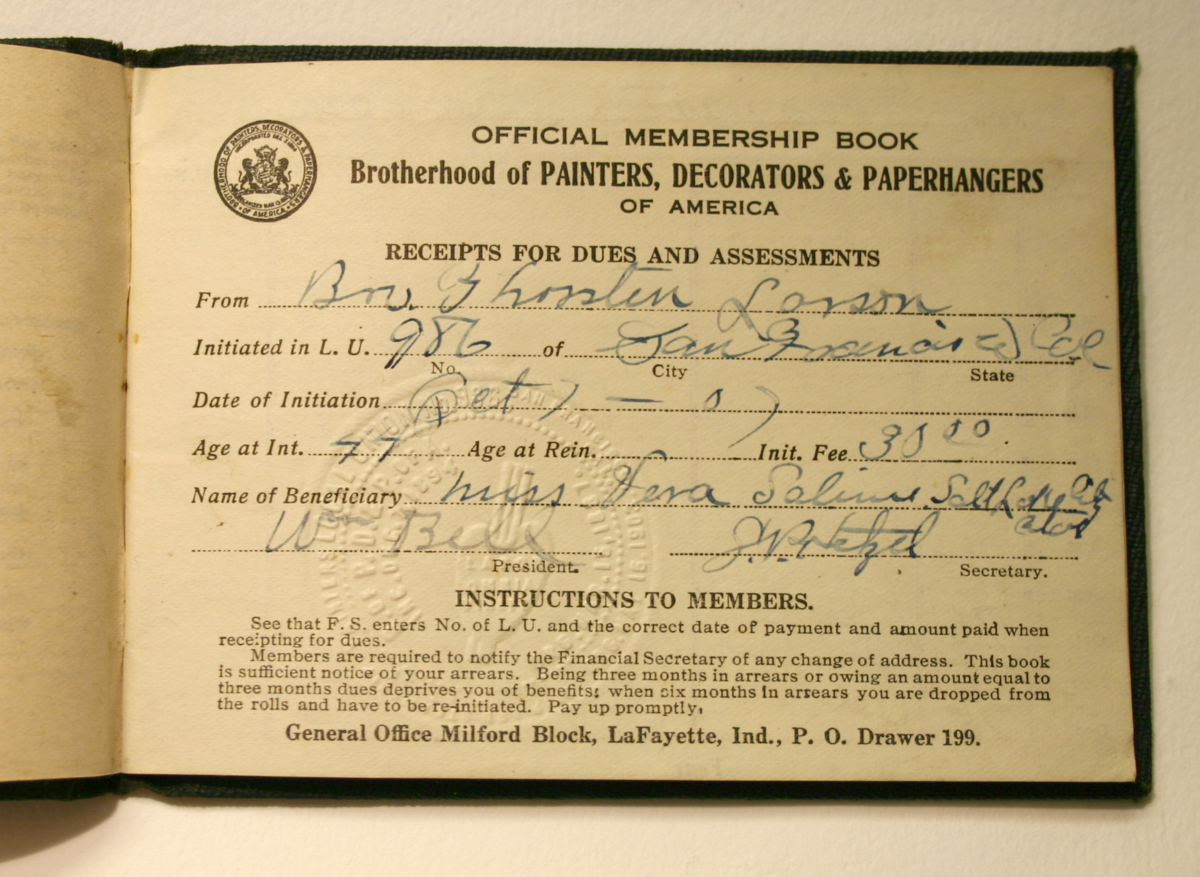 BROTHERHOOD OF PAINTERS, DECORATORS & PAPERHANGERS OF AMERICA
OFFICIAL MEMBERSHIP BOOK
Brotherhood of PAINTERS, DECORATORS & PAPERHANGERS
OF AMERICA
RECEIPTS FOR DUES AND ASSESSMENTS
From Bro. Thorsten Larson
Initiated in L. U. 986 of San Francisco Cal
No. City State
Date of Initiation Oct 7 - 07
Age at Int. Age at Rein. Init. Fee 30 00
Name of Beneficiary Miss Vera Salt Lake City
Wm Beck J. P. Wetzel
President. Secretary.
INSTRUCTIONS TO MEMBERS.
See that F. S. enters No. of L. U. and the correct date of payment and amount paid when
receipting for dues.
Members are required to notify the Financial Secretary of any change of address. This book
is sufficient notice of your arrears. Being three months in arrears or owing an amount equal to
three months dues deprives you of benefits; when six months in arrears you are dropped from
the rolls and have to be re-initiated. Pay up promptly.
General Office Milford Block, LaFayette, Ind., P. O. Drawer 199.